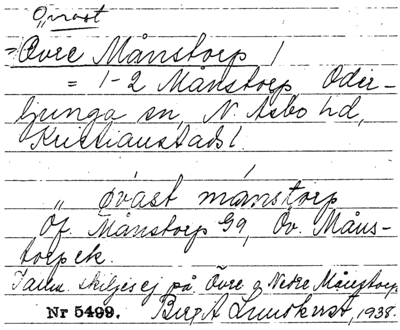 Ö, nost
= Övre Månstorp 1
= 1-2 Månstorp Oder-
ljunga sn, N. Åsbo hd,
Kristianstads l.
" øvast månstorp
Of. Månstorp Gg, Öv. Måns-
torp ek.
skiljes ej på Övre o. Nedre Månstorp
Nr 5499. Birg A Lundkvist, 1938.